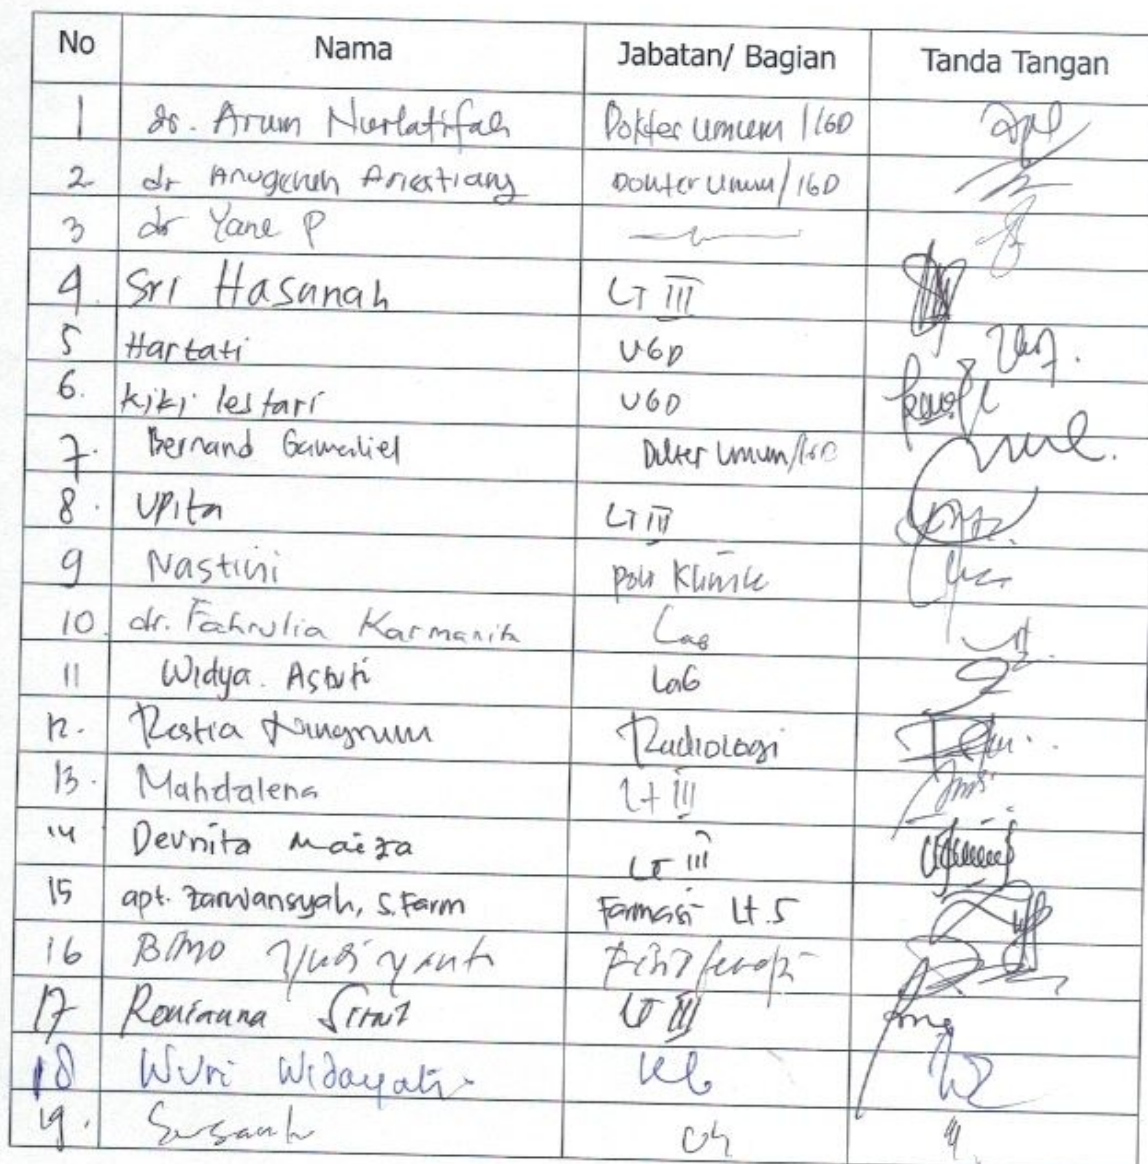 No Nama Jabatan/ Bagian Tanda Tangan
1 dr. Arum Nurlatifah Dokter Umum / IGD
2. dr Anugerah Dokter Umum / IGD
3 dr Yane P
4. Sri Hasanah LT III
5 Hartati UGD
6. Kiki lestari UGD
7. Bernand Gamaliel Dokter Umum/IGD
8. Upita LT III
9 Nastiti Poli Klinik
10. dr. Fahrulia Karmanita Lab
11 Widya. Astuti Lab
12. Restia Ningrum Radiologi
13. Mahdalena Lt III
14 Devnita Maiza LT III
15 apt. Zarwansyah, S.Farm Farmasi Lt.5
16 BIMO Yudiyanto Fisioterapi
17 Roulanna LT III
18 Wuri Widayati
19. Susanti